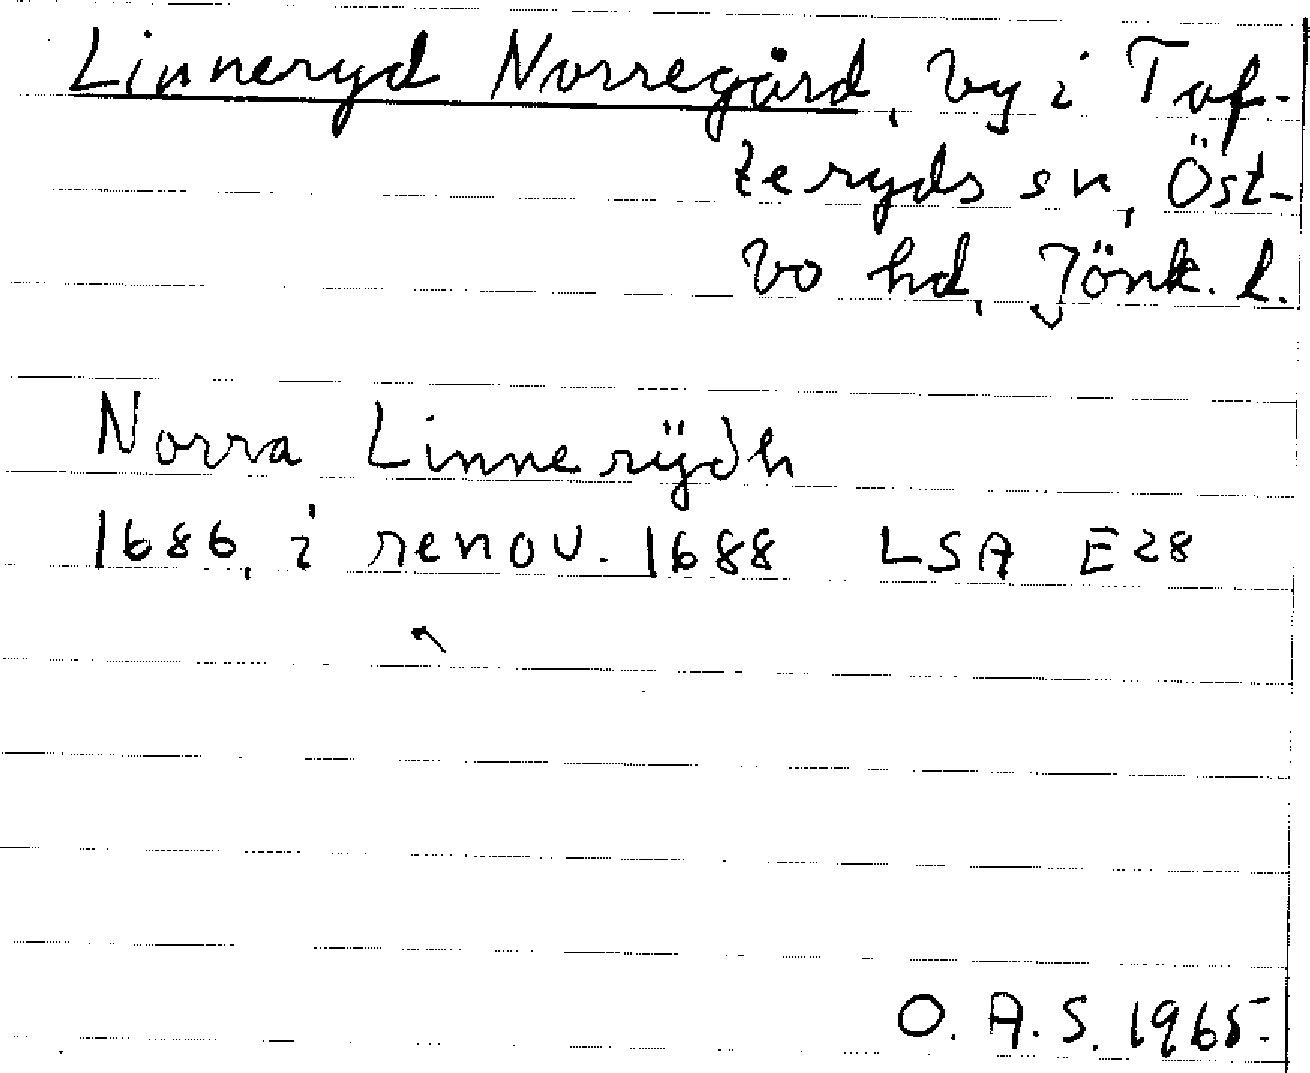 Linneryd Norregård, by i Tof-
teryds sn, Öst-
bo hd, Jönk. l.
Norra Linnerÿdh
1686, i renov. 1688 LSA E28
O. A. S. 1965.